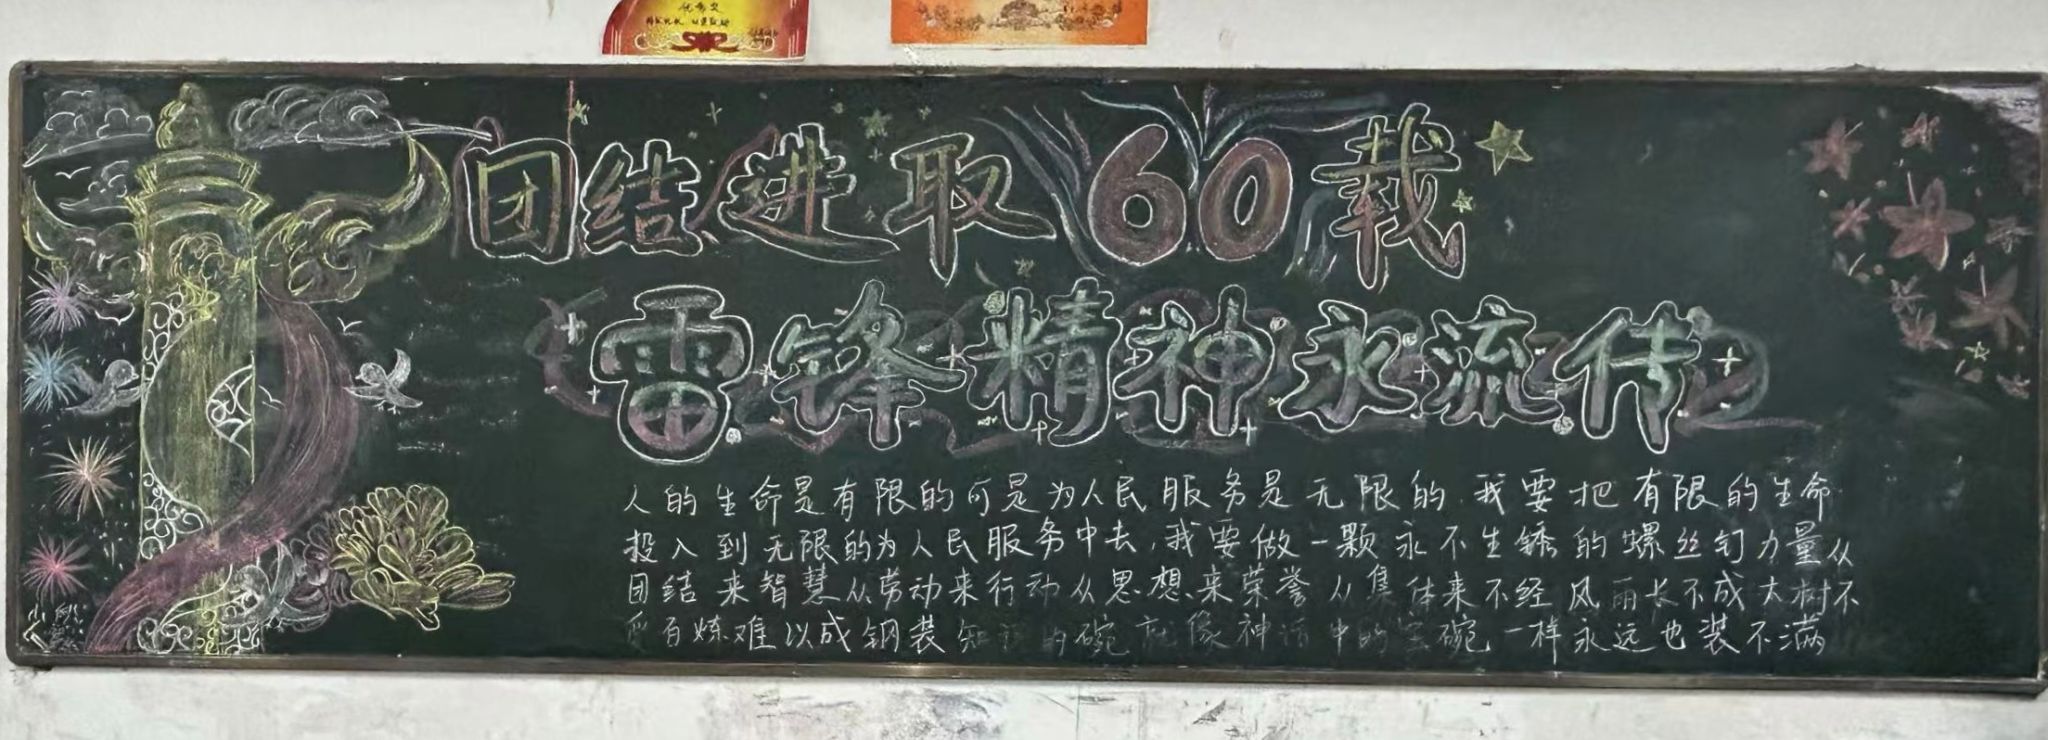 团结进取60载
雷锋精神永流传
人的生命是有限的可是为人民服务是无限的.我要把有限的生命
投入到无限的为人民服务中去,我要做一颗永不生锈的螺丝钉力量从
团结来智慧从劳动来行动从思想来荣誉从集体来不经风雨长不成大树不
受百炼难以成钢装知识的碗就像神话中的宝碗一样永远也装不满